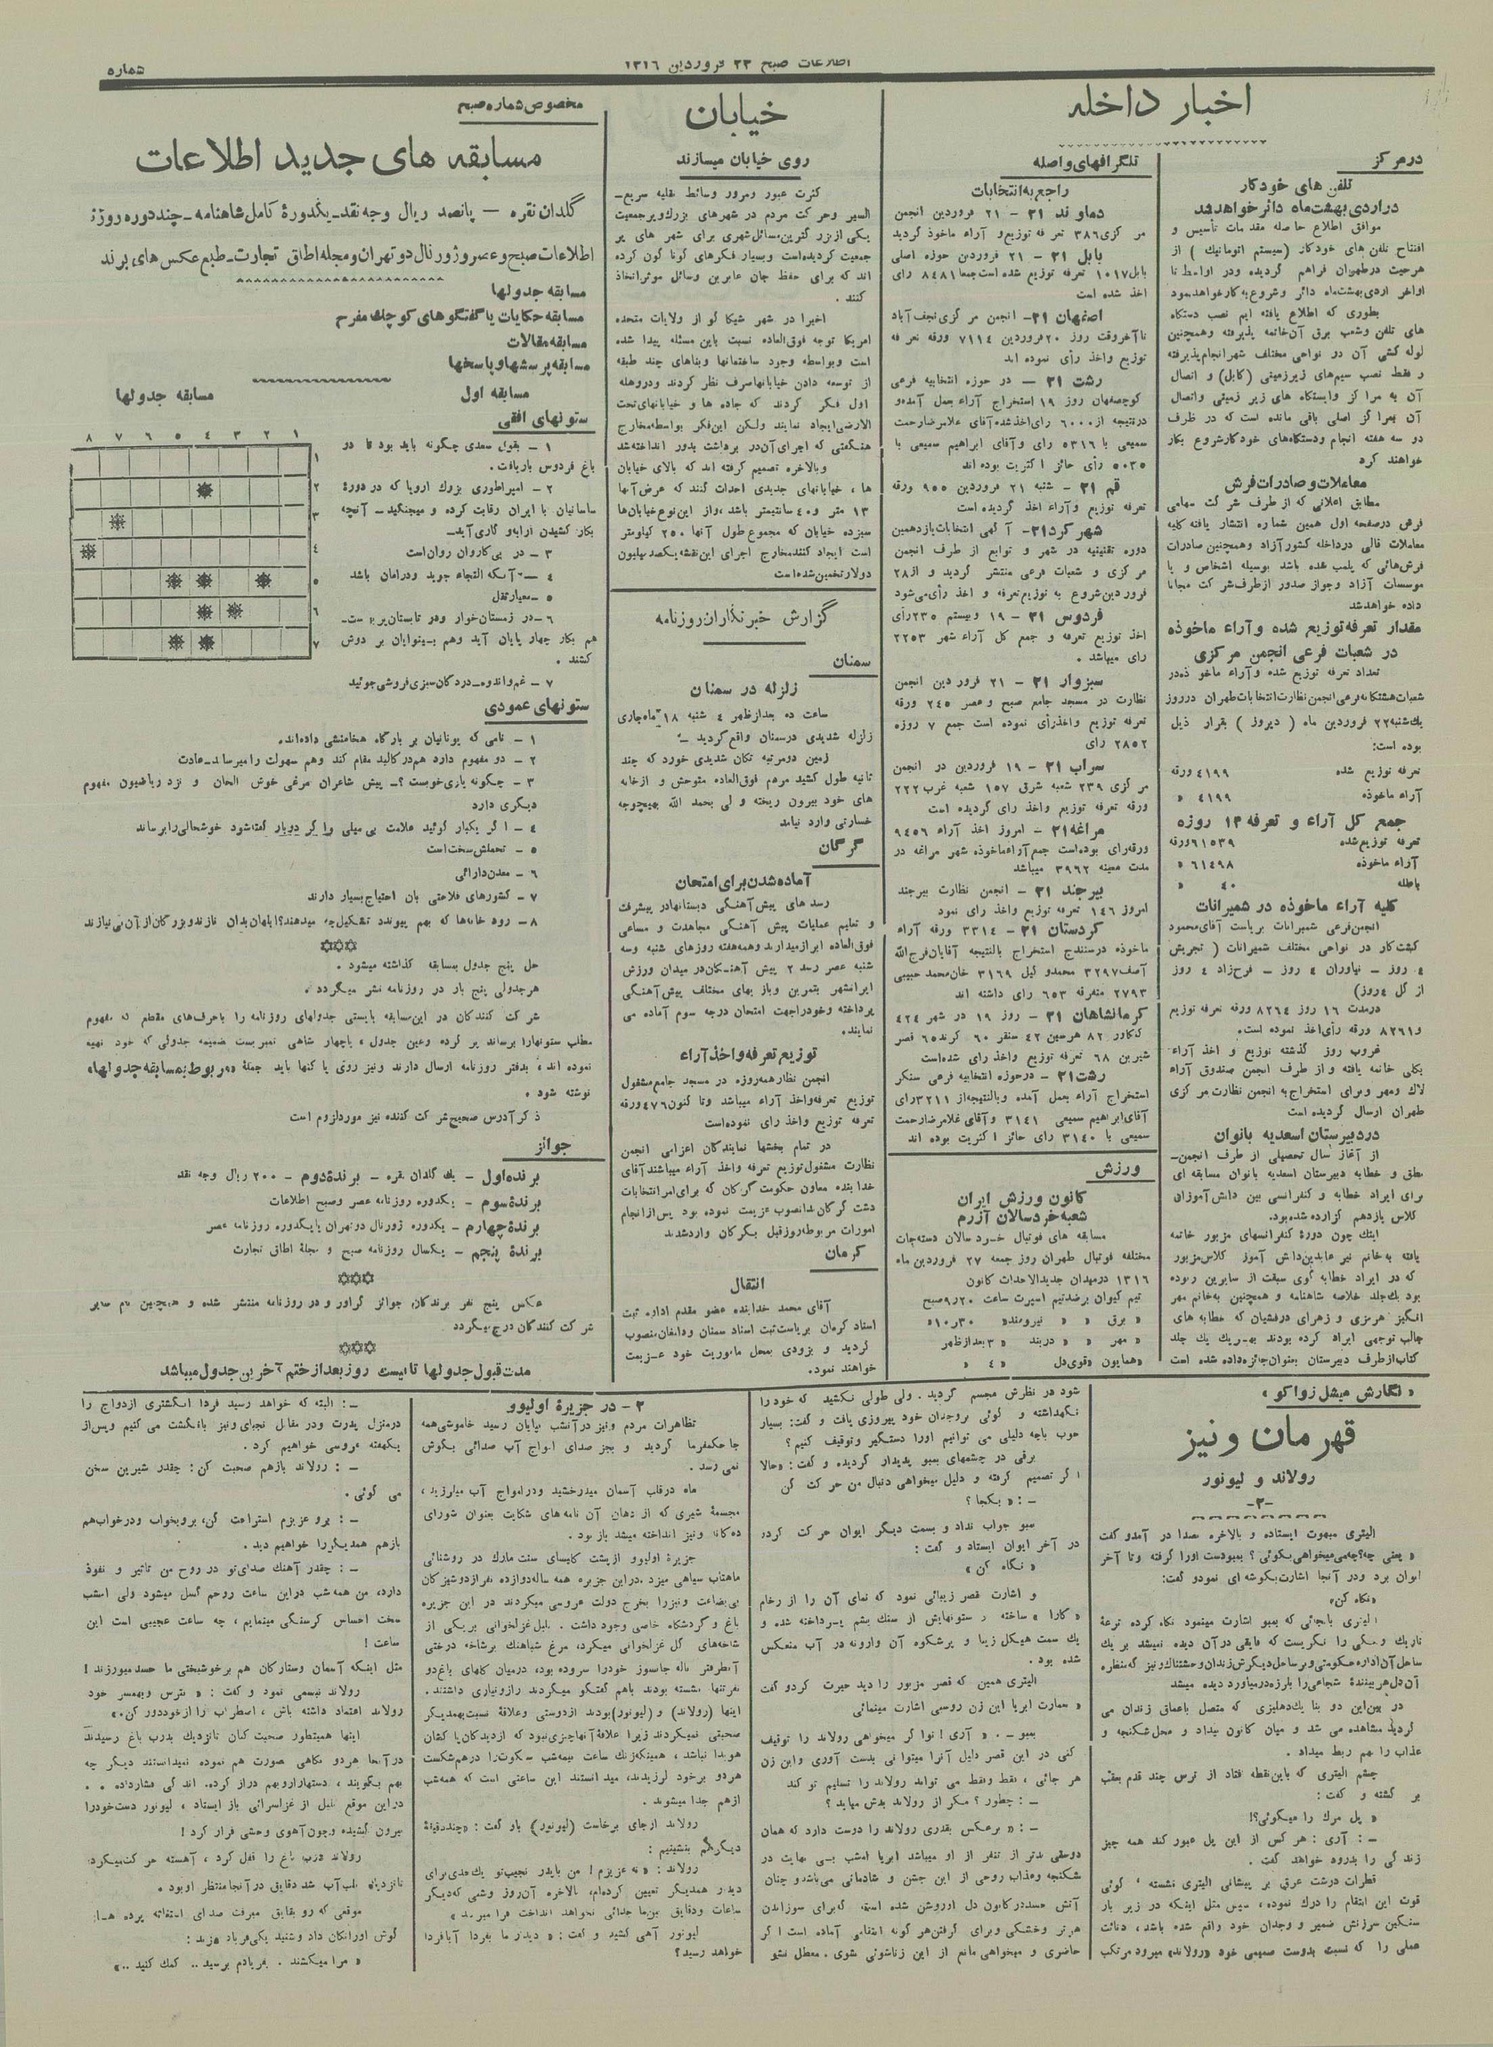 اطلاعات صبح ۲۳ فروردین ۱۳۱۶
شماره
اخبار داخله
در مرکز
تلفن های خودکار
در اردی بهشت ماه دائر خواهد شد
موافق اطلاع حاصله مقدمات تأسیس و
افتتاح تلفن های خودکار (سیستم اتوماتیک) از
هرحیث در طهران فراهم گردیده و در اواسط تا
اواخر اردی بهشت ماه دائر و شروع به کار خواهد نمود
بطوری که اطلاع یافته ایم نصب دستگاه
های تلفن و نصب برق آن خاتمه پذیرفته و همچنین
لوله کشی آن در نواحی مختلف شهر انجام پذیرفته
و فقط نصب سیم‌های زیرزمینی (کابل) و اتصال
آن به مراکز وایستگاه های زیر زمینی واتصال
آن بمراکز اصلی باقی مانده است که در ظرف
دو سه هفته انجام و دستگاه‌های خودکار شروع بکار
خواهند کرد
معاملات و صادرات فرش
مطابق اعلانی که از طرف شرکت سهامی
فرش در صفحه اول همین شماره انتشار یافته کلیه
معاملات قالی در داخله کشور آزاد و همچنین صادرات
فرش‌هائی که پلمب شده باشد بوسیله اشخاص و یا
موسسات آزاد و جواز صدور از طرف شرکت مجانا
داده خواهد شد
مقدار تعرفه توزیع شده و آراء ماخوذه
در شعبات فرعی انجمن مرکزی
تعداد تعرفه توزیع شده و آراء ماخوذه در
شعبات هشتگانه فرعی انجمن نظارت انتخابات طهران در روز
یک شنبه ۲۲ فروردین ماه ( دیروز ) بقرار ذیل
بوده است:
تعرفه توزیع شده ۴۱۹۹ ورقه
آراء ماخوذه ۴۱۹۹ «
جمع کل آراء و تعرفه ۱۳ روزه
تعرفه توزیع شده ۶۱۵۳۹ ورقه
آراء ماخوذه ۶۱۴۹۸ «
باطله ۴۰ «
کلیه آراء ماخوذه در شمیرانات
انجمن فرعی شمیرانات بریاست آقای محمود
کشت کار در نواحی مختلف شمیرانات ( تجریش
۴ روز - نیاوران ۴ روز - فرح‌زاد ۴ روز
از کل ۴ روز)
در مدت ۱۶ روز ۸۲۶۴ ورقه تعرفه توزیع
و ۸۲۶۱ ورقه رأی اخذ نموده است.
غروب روز گذشته توزیع و اخذ آراء
بکلی خاتمه یافته و از طرف انجمن صندوق آراء
لاک و مهر و برای استخراج به انجمن نظارت مرکزی
طهران ارسال گردیده است
در دبیرستان اسعدیه بانوان
از آغاز سال تحصیلی از طرف انجمن-
نطق و خطابه دبیرستان اسعدیه بانوان مسابقه ای
برای ایراد خطابه و کنفرانسی بین دانش آموزان
کلاس یازدهم گزارده شده بود.
اینک چون دورهٔ کنفرانسهای مزبور خاتمه
یافته به خانم نیر عابدین دانش آموز کلاس مزبور
که در ایراد خطابه گوی سبقت از سایرین ربوده
بود یک جلد خلاصه شاهنامه و همچنین به خانم مهر
انگیز هرمزی و زهرای درفشیان که خطابه های
جالب توجهی ایراد کرده بودند بهریک یک جلد
کتاب از طرف دبیرستان بعنوان جایزه داده شده است
تلگرافهای واصله
راجع به انتخابات
دماوند ۲۱ - ۲۱ فروردین انجمن
مرکزی ۳۸۶ تعرفه توزیع و آراء ماخوذ گردید
بابل ۲۱ - ۲۱ فروردین حوزه اصلی
بابل ۱۰۱۷ تعرفه توزیع شده است جمعا ۸۴۸۱ رای
اخذ شده است
اصفهان ۲۱- انجمن مرکزی نجف آباد
تا آخر وقت روز ۲۰ فروردین ۷۱۱۴ ورقه تعرفه
توزیع و اخذ رأی نموده اند
رشت ۲۱ - در حوزه انتخابیه فرعی
کوچصفهان روز ۱۹ استخراج آراء بعمل آمده و
در نتیجه از ۶۰۰۰ رای اخذ شده آقای غلامرضا رحمت
سمیعی با ۵۳۱۶ رای و آقای ابراهیم سمیعی با
۵۰۳۵ رأی حائز اکثریت بوده اند
قم ۲۱ - شنبه ۲۱ فروردین ۹۵۵ ورقه
تعرفه توزیع و آراء اخذ گردیده است
شهر کرد ۲۱- آگهی انتخابات یازدهمین
دوره تقنینیه در شهر و توابع از طرف انجمن
مرکزی و شعبات فرعی منتشر گردید و از ۲۸
فروردین شروع به توزیع تعرفه و اخذ رأی می‌شود
فردوس ۲۱ - ۱۹ و بیستم ۲۳۵ رأی
اخذ توزیع تعرفه و جمع کل آراء شهر ۲۲۵۳
رای میباشد.
سبزوار ۲۱ - ۲۱ فروردین انجمن
نظارت در مسجد جامع صبح و عصر ۲۴۵ ورقه
تعرفه توزیع و اخذ رأی نموده است جمع ۷ روزه
۲۸۵۲ رای
سراب ۲۱ - ۱۹ فروردین در انجمن
مرکزی ۲۳۹ شعبه شرق ۱۵۷ شعبه غرب ۲۲۲
ورقه تعرفه توزیع و اخذ رای گردیده است
مراغه ۲۱ - امروز اخذ آراء ۹۴۵۶
ورقه رای بوده است جمع آراء ماخوذه شهر مراغه در
مدت معینه ۳۹۶۲ میباشد
بیرجند ۲۱ - انجمن نظارت بیرجند
امروز ۱۴۶ تعرفه توزیع و اخذ رای نمود
کردستان ۲۱ - ۳۳۱۴ ورقه آراء
ماخوذه در سنندج استخراج بالنتیجه آقایان فرج الله
آصف ۳۲۹۷ محمد وکیل ۳۱۶۹ خان محمد حبیبی
۲۷۹۳ متفرقه ۶۵۳ رای داشته اند
کرمانشاهان ۲۱ - روز ۱۹ در شهر ۴۲۴
کنگاور ۸۲ هرسین ۴۲ سنقر ۶۰ کرند ۶۵ قصر
شیرین ۶۸ تعرفه توزیع و اخذ رای شده است
رشت ۲۱ - در حوزه انتخابیه فرعی سنگر
استخراج آراء بعمل آمده و بالنتیجه از ۳۲۱۱ رای
آقای ابراهیم سمیعی ۳۱۴۱ و آقای غلامرضا رحمت
سمیعی با ۳۱۴۰ رای حائز اکثریت بوده اند
ورزش
کانون ورزش ایران
شعبه خردسالان آزرم
مسابقه های فوتبال خردسالان دسته جات
مختلفه فوتبال طهران روز جمعه ۲۷ فروردین ماه
۱۳۱۶ در میدان جدید الاحداث کانون
تیم کیوان بر ضد تیم اسپرت ساعت ۹٫۲۰ صبح
« برق « « نیرومند « ۱۰٫۳۰ «
« مهر « « دربند « ۳ بعد از ظهر
« همایون « قوی دل « ۴ «
خیابان
روی خیابان میسازند
کثرت عبور و مرور وسائط نقلیه سریع-
السیر و حرکت مردم در شهر های بزرگ و پرجمعیت
یکی از بزرگترین مسائل شهری برای شهر های پر
جمعیت گردیده است و بسیار فکرهای گوناگون کرده
اند که برای حفظ جان عابرین وسائل موثر اتخاذ
کنند.
اخیرا در شهر شیکاگو از ولایات متحده
امریکا توجه فوق العاده نسبت باین مسئله پیدا شده
است و بواسطه وجود ساختمانها و بناهای چند طبقه
از توسعه دادن خیابانها صرف نظر کردند و در وهله
اول فکر کردند که جاده ها و خیابانهای تحت
الارضی ایجاد نمایند ولکن این فکر بواسطه مخارج
هنگفتی که اجرای آن در برداشت بدور انداخته شد
و بالاخره تصمیم گرفته اند که بالای خیابان
ها، خیابانهای جدیدی احداث کنند که عرض آنها
۱۳ متر و ۴۰ سانتیمتر باشد، و از این نوع خیابان‌ها
سیزده خیابان که مجموع طول آنها ۲۵۰ کیلومتر
است ایجاد کنند مخارج اجرای این نقشه یکصد میلیون
دولار تخمین شده است
گزارش خبرنگاران روزنامه
سمنان
زلزله در سمنان
ساعت ده بعد از ظهر ۴ شنبه ۱۸ ماه جاری
زلزله شدیدی در سمنان واقع گردید -
زمین دو مرتبه تکان شدیدی خورد که چند
ثانیه طول کشید مردم فوق العاده متوحش و از خانه
های خود بیرون ریخته و لی بحمد الله بهیچوجه
خسارتی وارد نیامد
گرگان
آماده شدن برای امتحان
رسد های پیش آهنگی دبستانها در پیشرفت
و تعلیم عملیات پیش آهنگی مجاهدت و مساعی
فوق العاده ابراز میدارند و همه هفته روزهای شنبه و سه
شنبه عصر رسد ۲ پیش آهنگان در میدان ورزش
ایرانشهر بتمرین و بازیهای مختلف پیش آهنگی
پرداخته و خود را جهت امتحان درجه سوم آماده می
نمایند.
توزیع تعرفه و اخذ آراء
انجمن نظار همه روزه در مسجد جامع مشغول
توزیع تعرفه و اخذ آراء میباشد و تا کنون ۴۷۶ ورقه
تعرفه توزیع و اخذ رای نموده است
در تمام بخشها نمایندگان اعزامی انجمن
نظارت مشغول توزیع تعرفه و اخذ آراء میباشند آقای
خدابنده معاون حکومت گرگان که برای امر انتخابات
دشت گرگان بدانصوب عزیمت نموده بود پس از انجام
امورات مربوطه روز قبل بگرگان وارد شدند
کرمان
انتقال
آقای محمد خدابنده عضو مقدم اداره ثبت
اسناد کرمان بریاست ثبت اسناد سمنان و دامغان منصوب
گردید و بزودی بمحل ماموریت خود عزیمت
خواهند نمود.
مخصوص شماره صبح
مسابقه های جدید اطلاعات
گلدان نقره - پانصد ریال وجه نقد - یکدورهٔ کامل شاهنامه - چند دوره روزنامه
اطلاعات صبح و عصر و ژورنال دو تهران و مجله اطاق تجارت - طبع عکس های برنده
مسابقه جدولها
مسابقه حکایات یا گفتگوهای کوچک مفرح
مسابقه مقالات
مسابقه پرسشها و پاسخها
مسابقه اول
مسابقه جدولها
۱ ۲ ۳ ۴ ۵ ۶ ۷ ۸
۱
۲
۳
۴
۵
۶
۷
ستونهای افقی
۱ - بقول سعدی چگونه باید بود تا در
باغ فردوس بار یافت.
۲ - امپراطوری بزرگ اروپا که در دورهٔ
ساسانیان با ایران رقابت کرده و میجنگید - آنچه
بکار کشیدن ارابه و گاری آید-
۳ - در پی کاروان روان است
۴ - آنکه التجاء جوید و در امان باشد
۵ - معیار ثقل
۶ - در زمستان خوار و در تابستان پربهاست-
هم بکار چهار پایان آید و هم بینوایان بر دوش
کشند.
۷ - غم و اندوه - در دکان سبزی فروشی جوئید
ستونهای عمودی
۱ - نامی که یونانیان بر بارگاه هخامنشی داده‌اند.
۲ - دو مفهوم دارد هم در کالبد مقام کند و هم سهولت را میرساند - عادت
۳ - چگونه یاری خوبست؟ - پیش شاعران مرغی خوش الحان و نزد ریاضیون مفهوم
دیگری دارد
۴ - اگر یکبار گوئید علامت بی میلی و اگر دوبار گفته شود خوشحالی را برساند
۵ - تحملش سخت است
۶ - معدن دارائی
۷ - کشورهای فلاحتی بان احتیاج بسیار دارند
۸ - رود خانه‌ها که بهم پیوندد تشکیل چه میدهند؟ ابلهان بدان نازند و بزرگان از آن بی نیازند
حل پنج جدول بمسابقه گذاشته میشود.
هر جدولی پنج بار در روزنامه نشر میگردد.
شرکت کنندگان در این مسابقه بایستی جدولهای روزنامه را با حرف‌های مقطع که مفهوم
مطلب ستونها را برساند پر کرده و عین جدول با چهار شاهی تمبر پست ضمیمه جدولی که خود تهیه
نموده اند، بدفتر روزنامه ارسال دارند و نیز روی پاکتها باید جملهٔ «مربوط بمسابقه جدولها»
نوشته شود.
ذکر آدرس صحیح شرکت کننده نیز مورد لزوم است
جوائز
برندهٔ اول - یک گلدان نقره - برندهٔ دوم - ۲۰۰ ریال وجه نقد
برندهٔ سوم - یکدوره روزنامه عصر و صبح اطلاعات
برندهٔ چهارم - یکدوره ژورنال دو تهران یا یکدوره روزنامه عصر
برندهٔ پنجم - یکسال روزنامه صبح و مجلهٔ اطاق تجارت
عکس پنج نفر برندگان جوائز گراور و در روزنامه منتشر شده و همچنین نام سایر
شرکت کنندگان درج میگردد
مدت قبول جدولها تا بیست روز بعد از ختم آخرین جدول میباشد
« نگارش میشل زواکو »
قهرمان ونیز
رولاند و لیونور
-۳-
الیتری مبهوت ایستاده و بالاخره بصدا در آمد و گفت
« یعنی چه؟ چه می میخواهی بگوئی؟ بمبو دست اورا گرفته و تا آخر
ایوان برد و در آنجا اشارت بگوشه ای نمود و گفت:
« نگاه کن »
الیتری بآنجائی که بمبو اشارت مینمود نگاه کرده ترعهٔ
تاریک و تنگی را نگریست که قایقی در آن دیده نمیشد بر یک
ساحل آن اداره حکومتی و بر ساحل دیگرش زندان وحشتناک ونیز که منظره
آن دل هر بینندهٔ شجاعی را بلرزه در میاورد دیده میشد
در بین این دو بنا یک دهلیزی که متصل باعماق زندان می
گردید مشاهده می شد و میان کانون بیداد و محل شکنجه و
عذاب را بهم ربط میداد.
چشم الیتری که باین نقطه افتاد از ترس چند قدم بعقب
بر گشته و گفت:
« پل مرگ را میگوئی؟!
- : آری: هر کس از این پل عبور کند همه چیز
زندگی را بدرود خواهد گفت.
قطرات درشت عرق بر پیشانی الیتری نشسته، گوئی
قوت این انتقام را درک نموده، سپس مثل اینکه در زیر بار
سنگین سرزنش ضمیر و وجدان خود واقع شده باشد، دنائت
عملی را که نسبت بدوست صمیمی خود «رولاند» میرود مرتکب
شود در نظرش مجسم گردید. ولی طولی نکشید که خود را
نگهداشته و گوئی بر وجدان خود پیروزی یافت و گفت: بسیار
خوب باچه دلیلی می توانیم اورا دستگیر و توقیف کنیم؟
برقی در چشمهای بمبو پدیدار گردیده و گفت: «حالا
اگر تصمیم گرفته و دلیل میخواهی دنبال من حرکت کن
- : « بکجا؟
بمبو جواب نداد و بسمت دیگر ایوان حرکت کرد،
در آخر ایوان ایستاد و گفت:
« نگاه کن »
و اشارت قصر زیبائی نمود که نمای آن را از رخام
« کارا » ساخته و ستونهایش از سنگ یشم پرداخته شده و
یک سمت هیکل زیبا و پرشکوه آن وارونه در آب منعکس
شده بود.
الیتری همین که قصر مزبور را دید حیرت کرد و گفت
« عمارت ایریا این زن روسپی اشارت مینمائی
بمبو - . « آری! تو اگر میخواهی رولاند را توقیف
کنی در این قصر دلیل آنرا میتوانی بدست آوری و این زن
هر جائی، فقط و فقط می تواند رولاند را تسلیم تو کند
- : چطور؟ مگر از رولاند بدش میاید؟
- : « برعکس بقدری رولاند را دوست دارد که همان
دوستی بدتر از تنفر از او میباشد ایریا امشب بی نهایت در
شکنجه و عذاب روحی از این جشن و شادمانی می باشد و چنان
آتش حسد در کانون دل او روشن شده است، که برای سوزاندن
هر تر و خشکی و برای گرفتن هر گونه انتقامی آماده است اگر
حاضری و میخواهی مانع از این زناشوئی شوی، معطل نشو
۲ - در جزیرهٔ اولیوو
تظاهرات مردم ونیز در آنشب بپایان رسید خاموشی همه
جا حکمفرما گردید و بجز صدای امواج آب صدائی بگوش
نمی رسد.
ماه در قلب آسمان میدرخشید و در امواج آب میلرزید،
مجسمهٔ شیری که از دهان آن نامه های شکایت بعنوان شورای
ده گانه ونیز انداخته میشد باز بود.
جزیرهٔ اولیوو از پشت کلیسای سنت مارک در روشنائی
ماهتاب سیاهی میزد. در این جزیره همه ساله دوازده نفر از دوشیزگان
بی بضاعت ونیز را بخرج دولت عروسی میکردند در این جزیره
باغ و گردشگاه خاصی وجود داشت. بلبل غزلخوانی بریکی از
شاخه‌های گل غزلخوانی میکرد، مرغ شباهنگ بر شاخ درختی
آنطرفتر ناله جانسوز خود را سروده بود، درمیان گلهای باغ دو
نفر تنها نشسته بودند باهم گفتگو میکردند راز و نیازی داشتند.
اینها (رولاند) و (لیونور) بودند از دوستی و علاقهٔ نسبت بهمدیگر
صحبتی نمیکردند زیرا علاقهٔ آنها چیزی نبود که از دیدگان یا کشان
هویدا نباشد، همینکه زنگ ساعت نیمه شب سکوت را در هم شکست
هر دو برخود لرزیدند، میدانستند این ساعتی است که همه شب
از هم جدا میشوند.
رولاند از جای برخاست (لیونور) باو گفت: «چند دقیقهٔ
دیگر هم بنشینیم:
رولاند: « نه عزیزم! من باید در نجیب تو یک حدی برای
دیدار همدیگر تعیین کرده‌ام، بالاخره آن روز وشبی که دیگر
ساعات و دقایق بین ما جدائی نخواهد انداخت فرا میرسد »
لیونور آهی کشید و گفت: « دیدار ما بفردا آیا فردا
خواهد رسید؟
- : البته که خواهد رسید فردا انگشتری ازدواج را
در منزل پدرت و در مقابل نجبای ونیز بانگشت می کنیم و پس از
یکهفته عروسی خواهیم کرد.
- : رولاند بازهم صحبت کن: چقدر شیرین سخن
می گوئی.
- : برو عزیزم استراحت کن، برو بخواب و در خواب هم
بازهم همدیگر را خواهیم دید.
- : چقدر آهنگ صدای تو در روح من تاثیر و نفوذ
دارد، من همه شب در این ساعت روحم کسل میشود ولی امشب
سخت احساس گرسنگی مینمایم، چه ساعت عجیبی است این
ساعت!
مثل اینکه آسمان و ستارگان هم بر خوشبختی ما حسد میورزند!
رولاند تبسمی نمود و گفت: « نترس و بهمسر خود
رولاند اعتماد داشته باش، اضطراب را از خود دور کن. »
اینها همینطور صحبت کنان تا نزدیک بدرب باغ رسیدند
در آنجا هر دو نگاهی صورت هم نموده نمیدانستند دیگر چه
بهم بگویند، دستها را و بهم دراز کرده، اندکی فشار داده. . .
در این موقع بلبل از غزلسرائی باز ایستاد، لیونور دست خود را
بیرون کشیده و چون آهوی وحشی فرار کرد!
رولاند درب باغ را قفل کرد، آهسته حرکت میکرد
تا نزدیک لب آب شد دقایق در آنجا منتظر او بود.
موقعی که رو بقایق میرفت صدای استغاثه پرده های
گوش اورا تکان داد و شنید یکی فریاد میزند:
« مرا میکشند. بفریادم برسید.. کمک کنید.. »